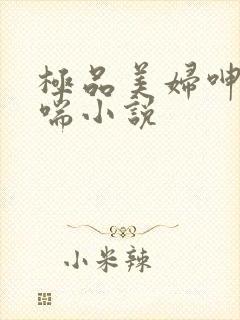 極品美婦呻
喘小説
小米辣